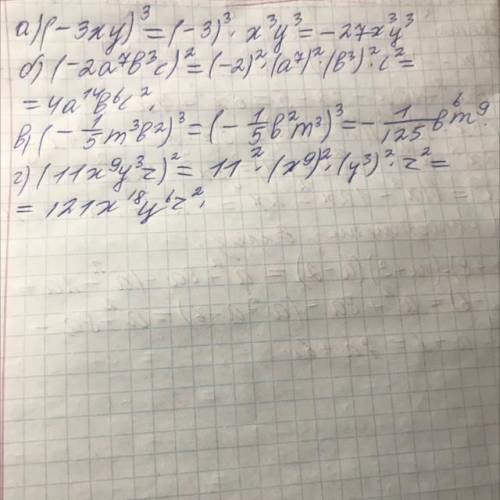 а) (-3xy)³ = (-3)³ · x³y³ = -27x³y³
б) (-2a⁷b³c)² = (-2)² · (a⁷)² · (b³)² · c² =
= 4a¹⁴b⁶c².
в) (-1/5 m³b²)³ = (-1/5 b²m³)³ = -1/125 b⁶m⁹.
г) (11x⁹y³z)² = 11² · (x⁹)² · (y³)² · z² =
= 121x¹⁸y⁶z².